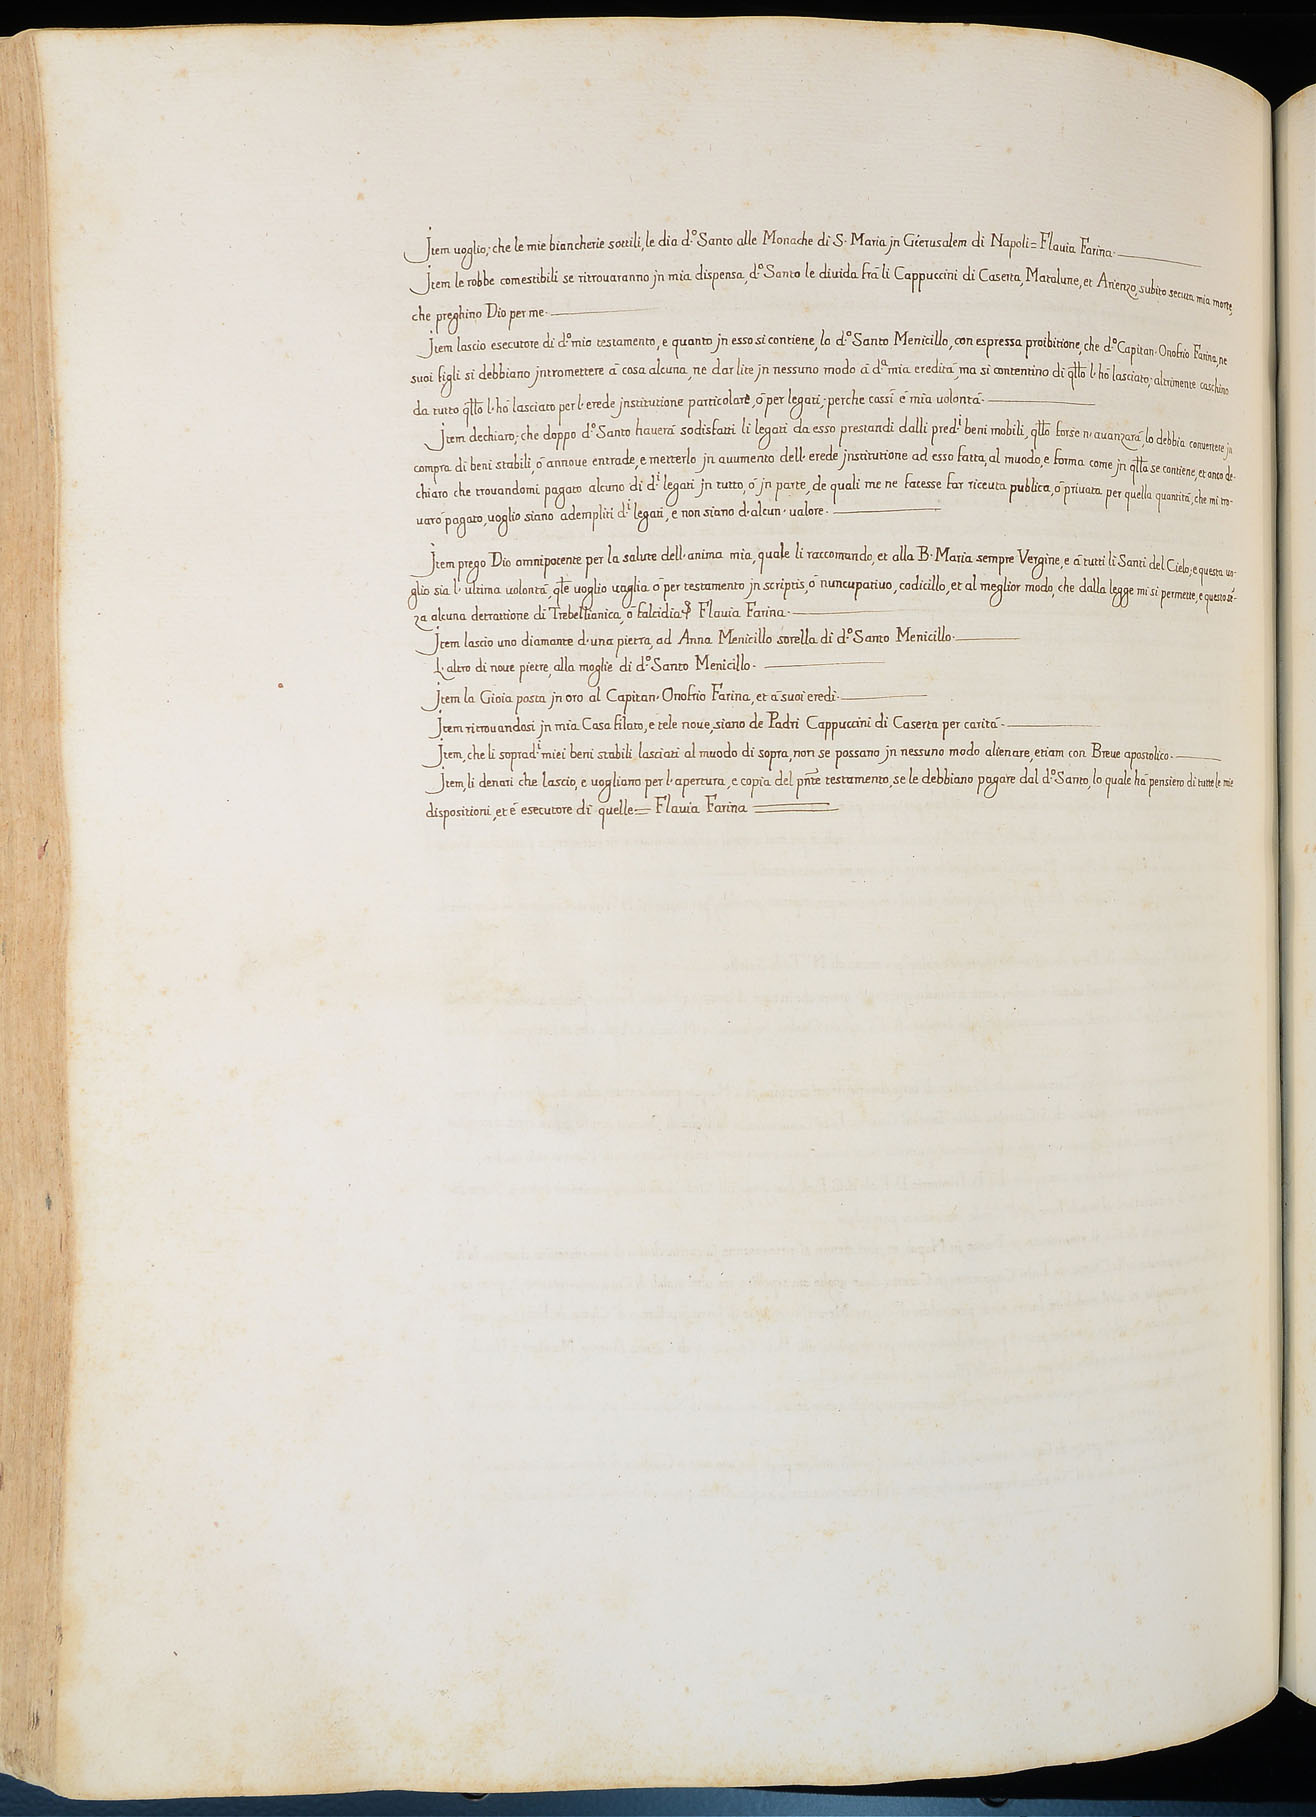 Jtem uoglio, che le mie biancherie sottili, le dia d.º Santo alle Monache di S. Maria jn Gierusalem di Napoli = Flauia Farina.
Jtem le robbe comestibili se ritrouaranno jn mia dispensa, d.º Santo le diuida frà li Cappuccini di Caserta, Matalune, et Arienzo, subito secuta mia morte,
che preghino Dio per me.
Jtem lascio esecutore di d.º mio testamento, e quanto jn esso si contiene, lo d.º Santo Menicillo, con espressa proibitione, che d.º Capitan. Onofrio Farina, ne
suoi figli si debbiano jntromettere à cosa alcuna, ne dar lite jn nessuno modo à d.ª mia eredità, ma si contentino di qllo l. hò lasciato; altrimente caschino
da tutto qllo l. hò lasciato per l. erede jnstitutione particolare, ò per legati; perche cassì è mia uolontà.
Jtem dechiaro; che doppo d.º Santo hauerà sodisfatti li legati da esso prestandi dalli pred.i beni mobili, qllo forse n. auanzarà, lo debbia conuertere jn
compra di beni stabili, ò annoue entrade, e metterlo jn auumento dell. erede jnstitutione ad esso fatta, al muodo, e forma come jn qlla se contiene, et anco de-
chiaro che trouandomi pagato alcuno di d.i legati jn tutto, ò jn parte, de quali me ne facesse far riceuta publica, ò priuata per quella quantità, che mi tro-
uarò pagato, uoglio siano adempliti d.i legati, e non siano d. alcun. ualore.
Jtem prego Dio omnipotente per la salute dell. anima mia, quale li raccomando, et alla B. Maria sempre Vergine, e à tutti li Santi del Cielo; e questa uo-
glio sia l. ultima uolontà, qle uoglio uaglia. ò per testamento jn scriptis, ò nuncupatiuo, codicillo, et al meglior modo, che dalla legge mi si permette, e questo sē-
za alcuna detrattione di Trebellianica, ò falcidia Flauia Farina.
Jtem lascio uno diamante d. una pietra, ad Anna Menicillo sorella di d.º Santo Menicillo.
L. altro di noue pietre, alla moglie di d.º Santo Menicillo.
Jtem la Gioia posta jn oro al Capitan. Onofrio Farina, et à suoi eredi.
Jtem ritrouandosi jn mia Casa filato, e tele noue, siano de Padri Cappuccini di Caserta per carità.
Jtem, che li soprad.i miei beni stabili lasciati al muodo di sopra, non se possano jn nessuno modo alienare, etiam con Breue apostolico.
Jtem, li denari che lascio, e uogliono per l. apertura, e copia del pnte testamento, se le debbiano pagare dal d.º Santo, lo quale hà pensiero di tutte le mie
dispositioni, et è esecutore di quelle = Flauia Farina